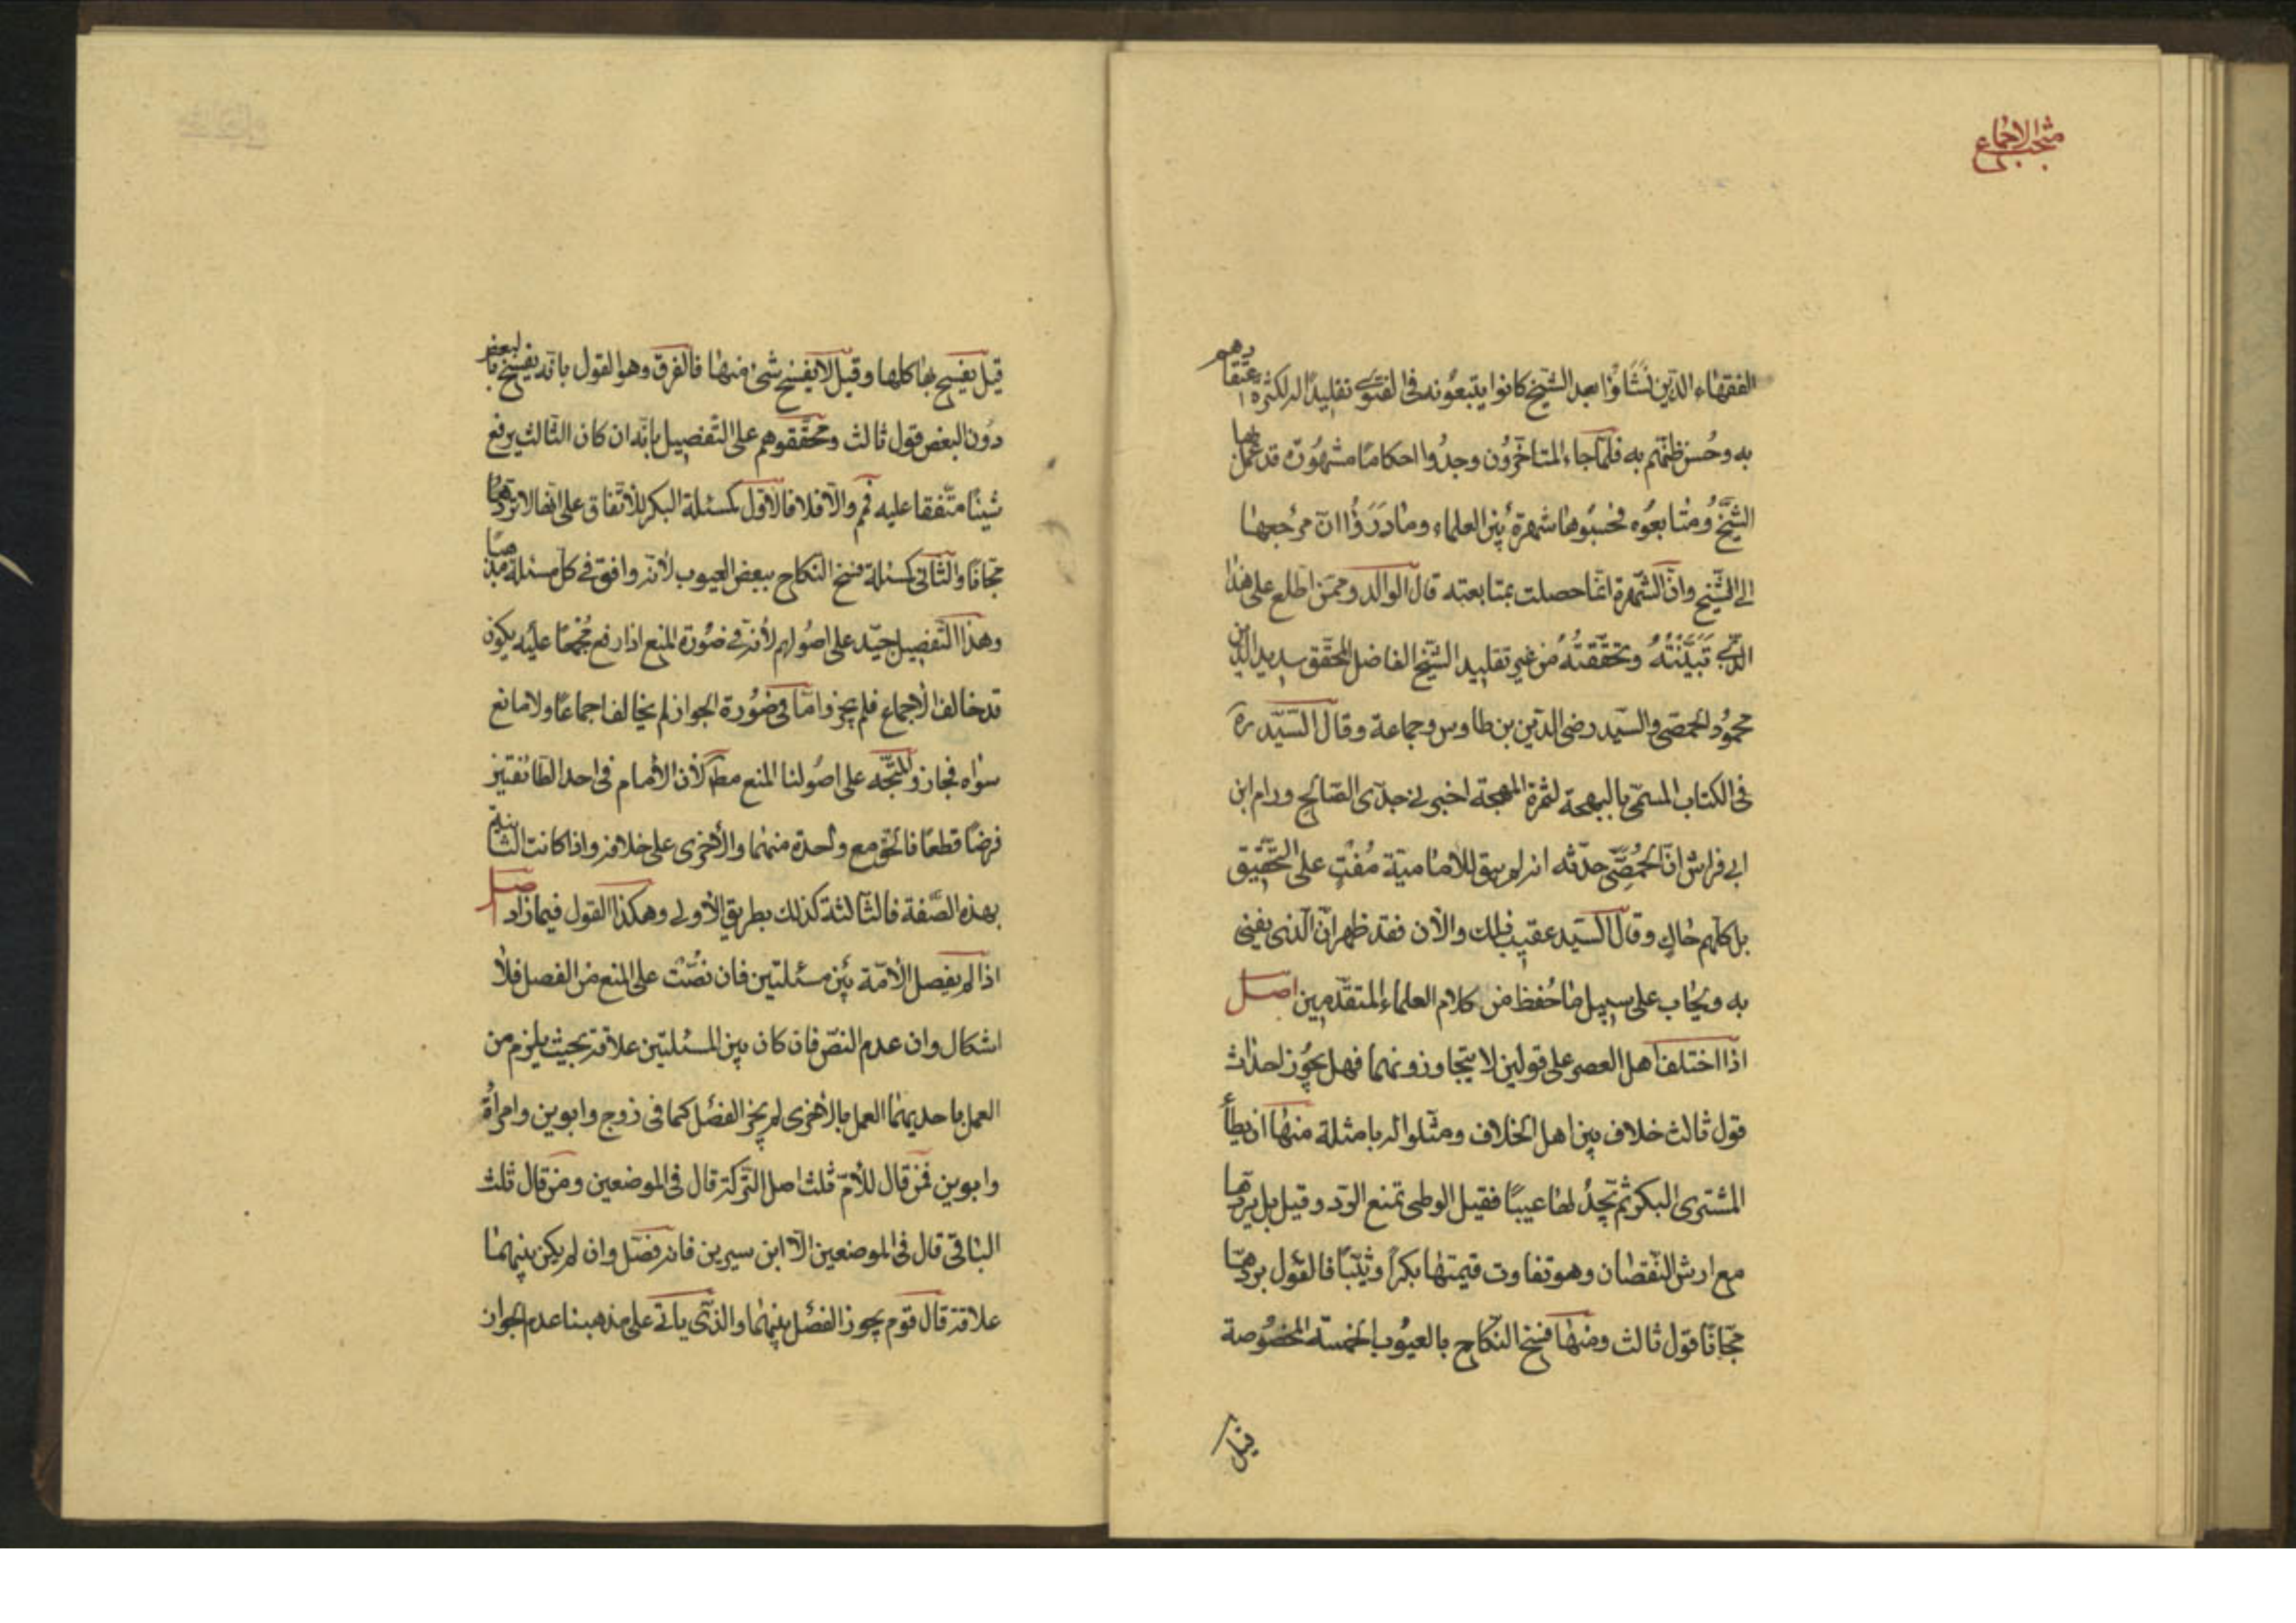 مبحث الاجماع
الفقهاء الذين نشاؤا بعد الشيخ كانوا يتبعونه فى الفتوى تقليدًا له لكثرة اعتقادهم
به وحسن ظنهم به فلما جاء المتاخرون وجدوا احكامًا مشهورة قد عمل بها
الشيخ ومتابعوه فحسبوها شهرة بين العلماء وما دَرَوْا ان مرجعها
الى الشيخ وان الشهرة انما حصلت بمتابعته قال الوالد وممن اطلع على هذا
الذى تبيّنته وتحققته من غير تقليد الشيخ الفاضل المحقق سديد الدين
محمود الحمصى والسيد رضى الدين بن طاوس وجماعة وقال السيد ره
فى الكتاب المسمى بالبهجة لثمرة المهجة اخبرنى جدى الصالح ورام ابن
ابى فراس ان الحمصى حدثه انه لم يبق للامامية مُفْتٍ على التحقيق
بل كلهم حاكٍ وقال السيد عقيب ذلك والان فقد ظهر ان الذى يفتى
به ويجاب على سبيل ما حُفظ من كلام العلماء المتقدمين اصل
اذا اختلف اهل العصر على قولين لا يتجاوزونهما فهل يجوز احداث
قول ثالث خلاف بين اهل الخلاف ومثلوا له بامثلة منها ان يطأ
المشترى البكر ثم يجد لها عيبًا فقيل الوطى تمنع الرد وقيل بل يردها
مع ارش النقصان وهو تفاوت قيمتها بكرًا وثيبًا فالقول بردها
مجانًا قول ثالث ومنها فسخ النكاح بالعيوب الخمسة المخصوصة
قيل
قيل يفسخ بها كلها وقيل لا يفسخ شئ منها فالفرق وهو القول بانه يفسخ بالبعض
دون البعض قول ثالث ومحققوهم على التفصيل بانه ان كان الثالث يرفع
شيئًا متفقا عليه فمم والا فلا فالاول كمسئلة البكر للاتفاق على انها لا تردها
مجانًا والثانى كمسئلة فسخ النكاح ببعض العيوب لانه وافق فى كل مسئلة مذهبًا
وهذا التفصيل جيد على اصولهم لانه فى صورة المنع اذا رفع مجمعًا عليه يكون
قد خالف الاجماع فلم يجز واما فى صورة الجواز لم يخالف اجماعًا ولا مانع
سواه فجاز والمتجه على اصولنا المنع مط لان الامام فى احد الطائفتين
فرضًا قطعًا فالحق مع واحدة منهما والاخرى على خلافه واذا كانت الثانية
بهذه الصفة فالثالثة كذلك بطريق الاولى وهكذا القول فيما زاد اصل
اذا لم يفصل الامة بين مسئلتين فان نصّت على المنع من الفصل فلا
اشكال وان عدم النص فان كان بين المسئلتين علاقة بحيث يلزم من
العمل باحديهما العمل بالاخرى لم يجز الفصل كما فى زوج وابوين وامرأة
وابوين فمن قال للام ثلث اصل التركة قال فى الموضعين ومن قال ثلث
الباقى قال فى الموضعين الا ابن سيرين فانه فصل وان لم يكن بينهما
علاقة قال قوم يجوز الفصل بينهما والذى ياتى على مذهبنا عدم الجواز